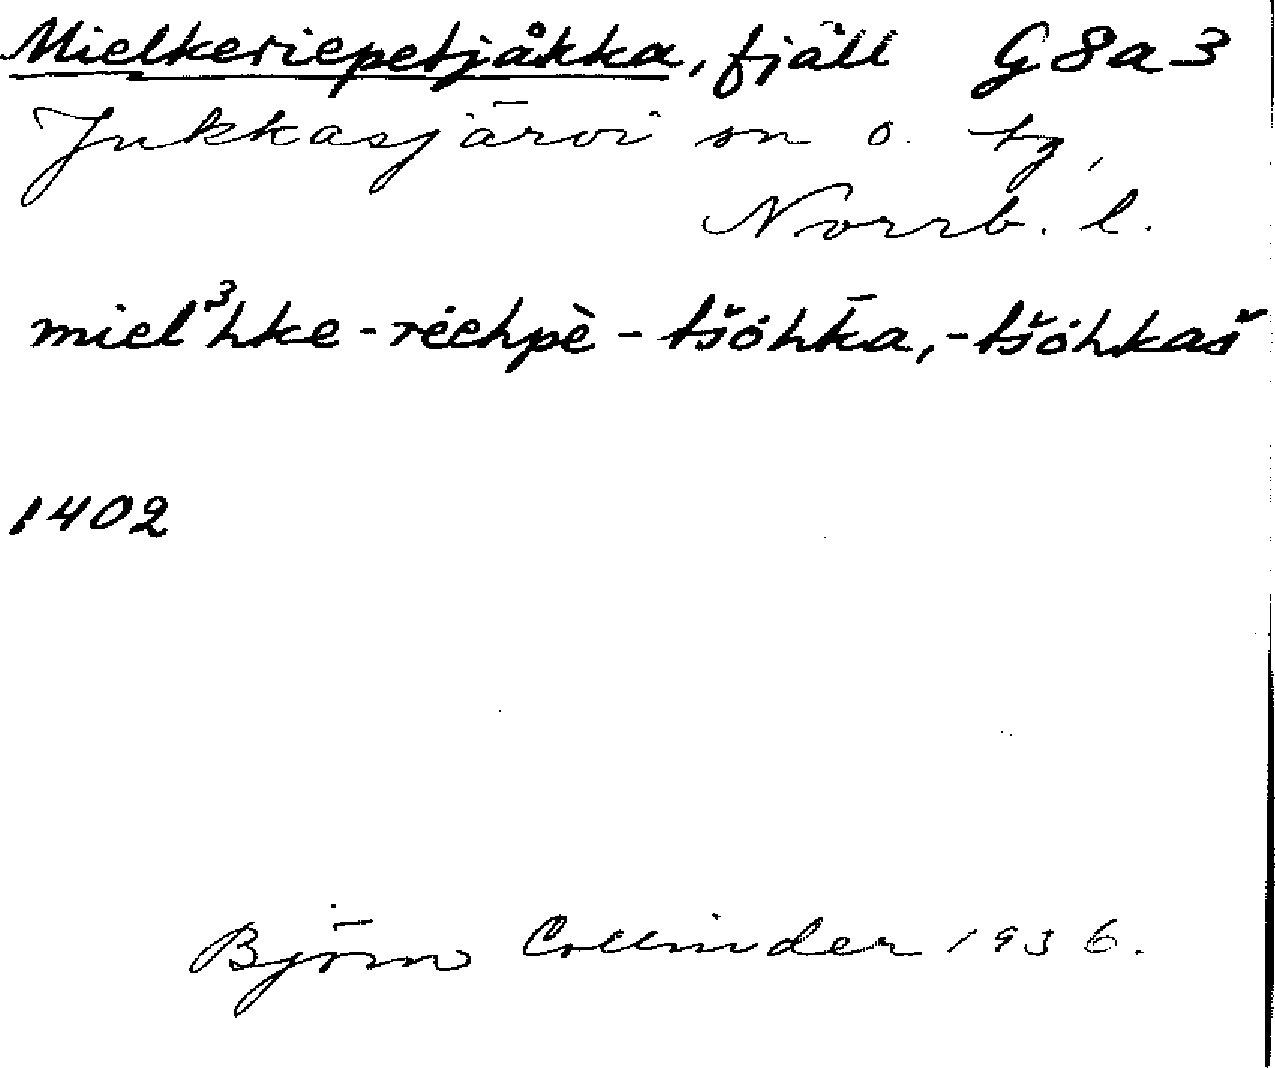 Mielkeriepetjåkka, fjäll G8a3
Jukkasjärvi sn o. tg,
Norrb. l.
miel³hke-riehpè-tšȯhk̄a, -tšȯhkaš
1402
Björn Collinder 1936.